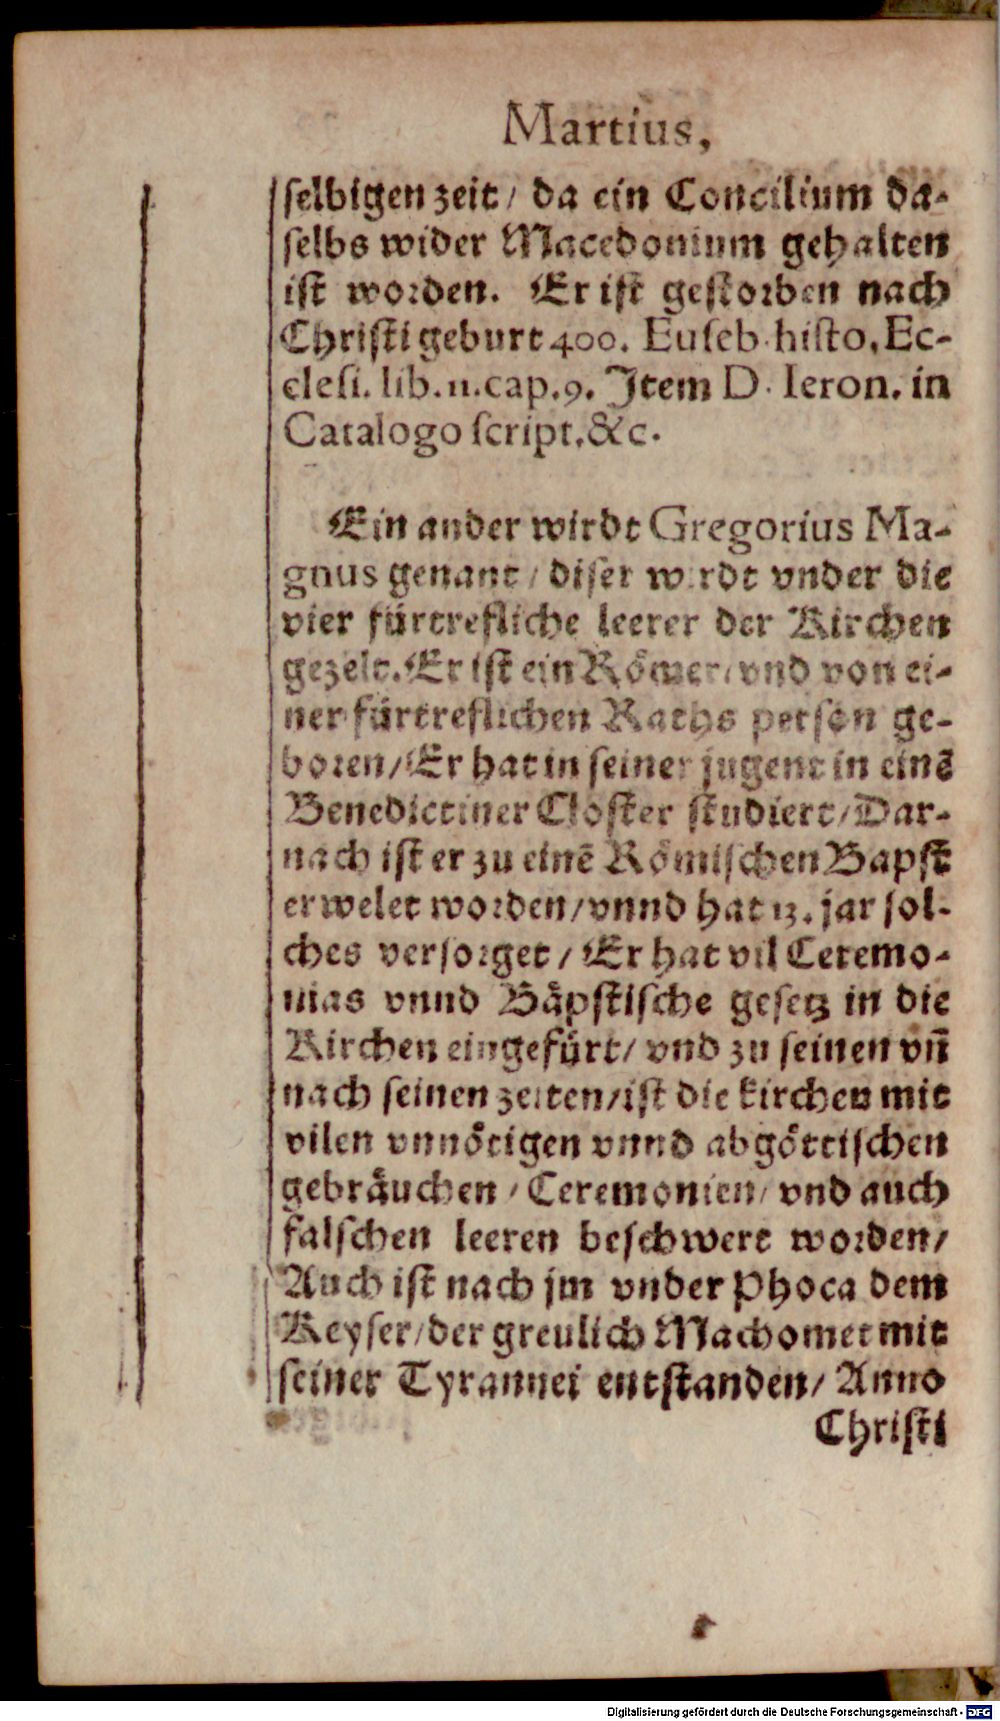 Martius,
ſelbigen zeit/ da ein Concilium da-
ſelbs wider Macedonium gehalten
iſt worden. Er iſt geſtorben nach
Chriſti geburt 400. Euſeb. hiſto. Ec-
cleſi. lib. 11. cap. 9. Item D. Ieron. in
Catalogo ſcript. &c.
Ein ander wirdt Gregorius Ma-
gnus genant/ diſer wirdt vnder die
vier fürtrefliche leerer der Kirchen
gezelt. Er iſt ein Römer/ vnd von ei-
ner fürtreflichen Raths perſon ge-
boren/ Er hat in ſeiner jugent in einē
Benedictiner Cloſter ſtudiert/ Dar-
nach iſt er zu einē Römiſchen Bapſt
erwelet worden/ vnnd hat 13. jar ſol-
ches verſorget/ Er hat vil Ceremo-
nias vnnd Bäpſtiſche geſetz in die
Kirchen eingefürt/ vnd zu ſeinen vñ
nach ſeinen zeiten/ iſt die kirchen mit
vilen vnnötigen vnnd abgöttiſchen
gebräuchen/ Ceremonien/ vnd auch
falſchen leeren beſchwert worden/
Auch iſt nach jm vnder Phoca dem
Keyſer/ der greulich Machomet mit
ſeiner Tyrannei entſtanden/ Anno
Chriſti
Digitalisierung gefördert durch die Deutsche Forschungsgemeinschaft - DFG